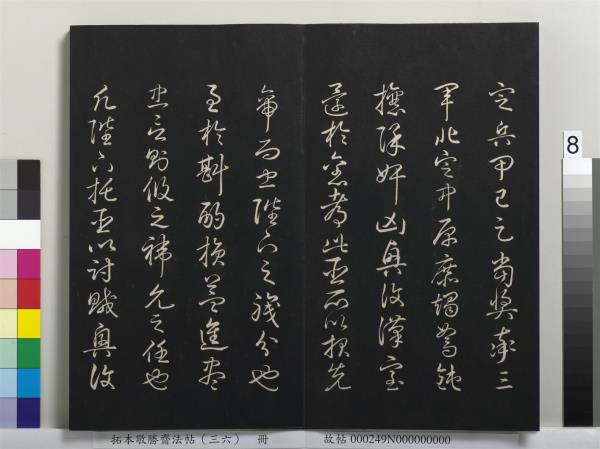 定兵甲已足當獎率三
軍北定中原庶竭駑鈍
攘除奸凶興復漢室
還於舊都此臣所以報先
帝而忠陛下之職分也
至於斟酌損益進盡
忠言則攸之禕允之任也
願陛下托臣以討賊興復
8
拓本敬勝齋法帖（三六） 冊 故帖 000249N000000000